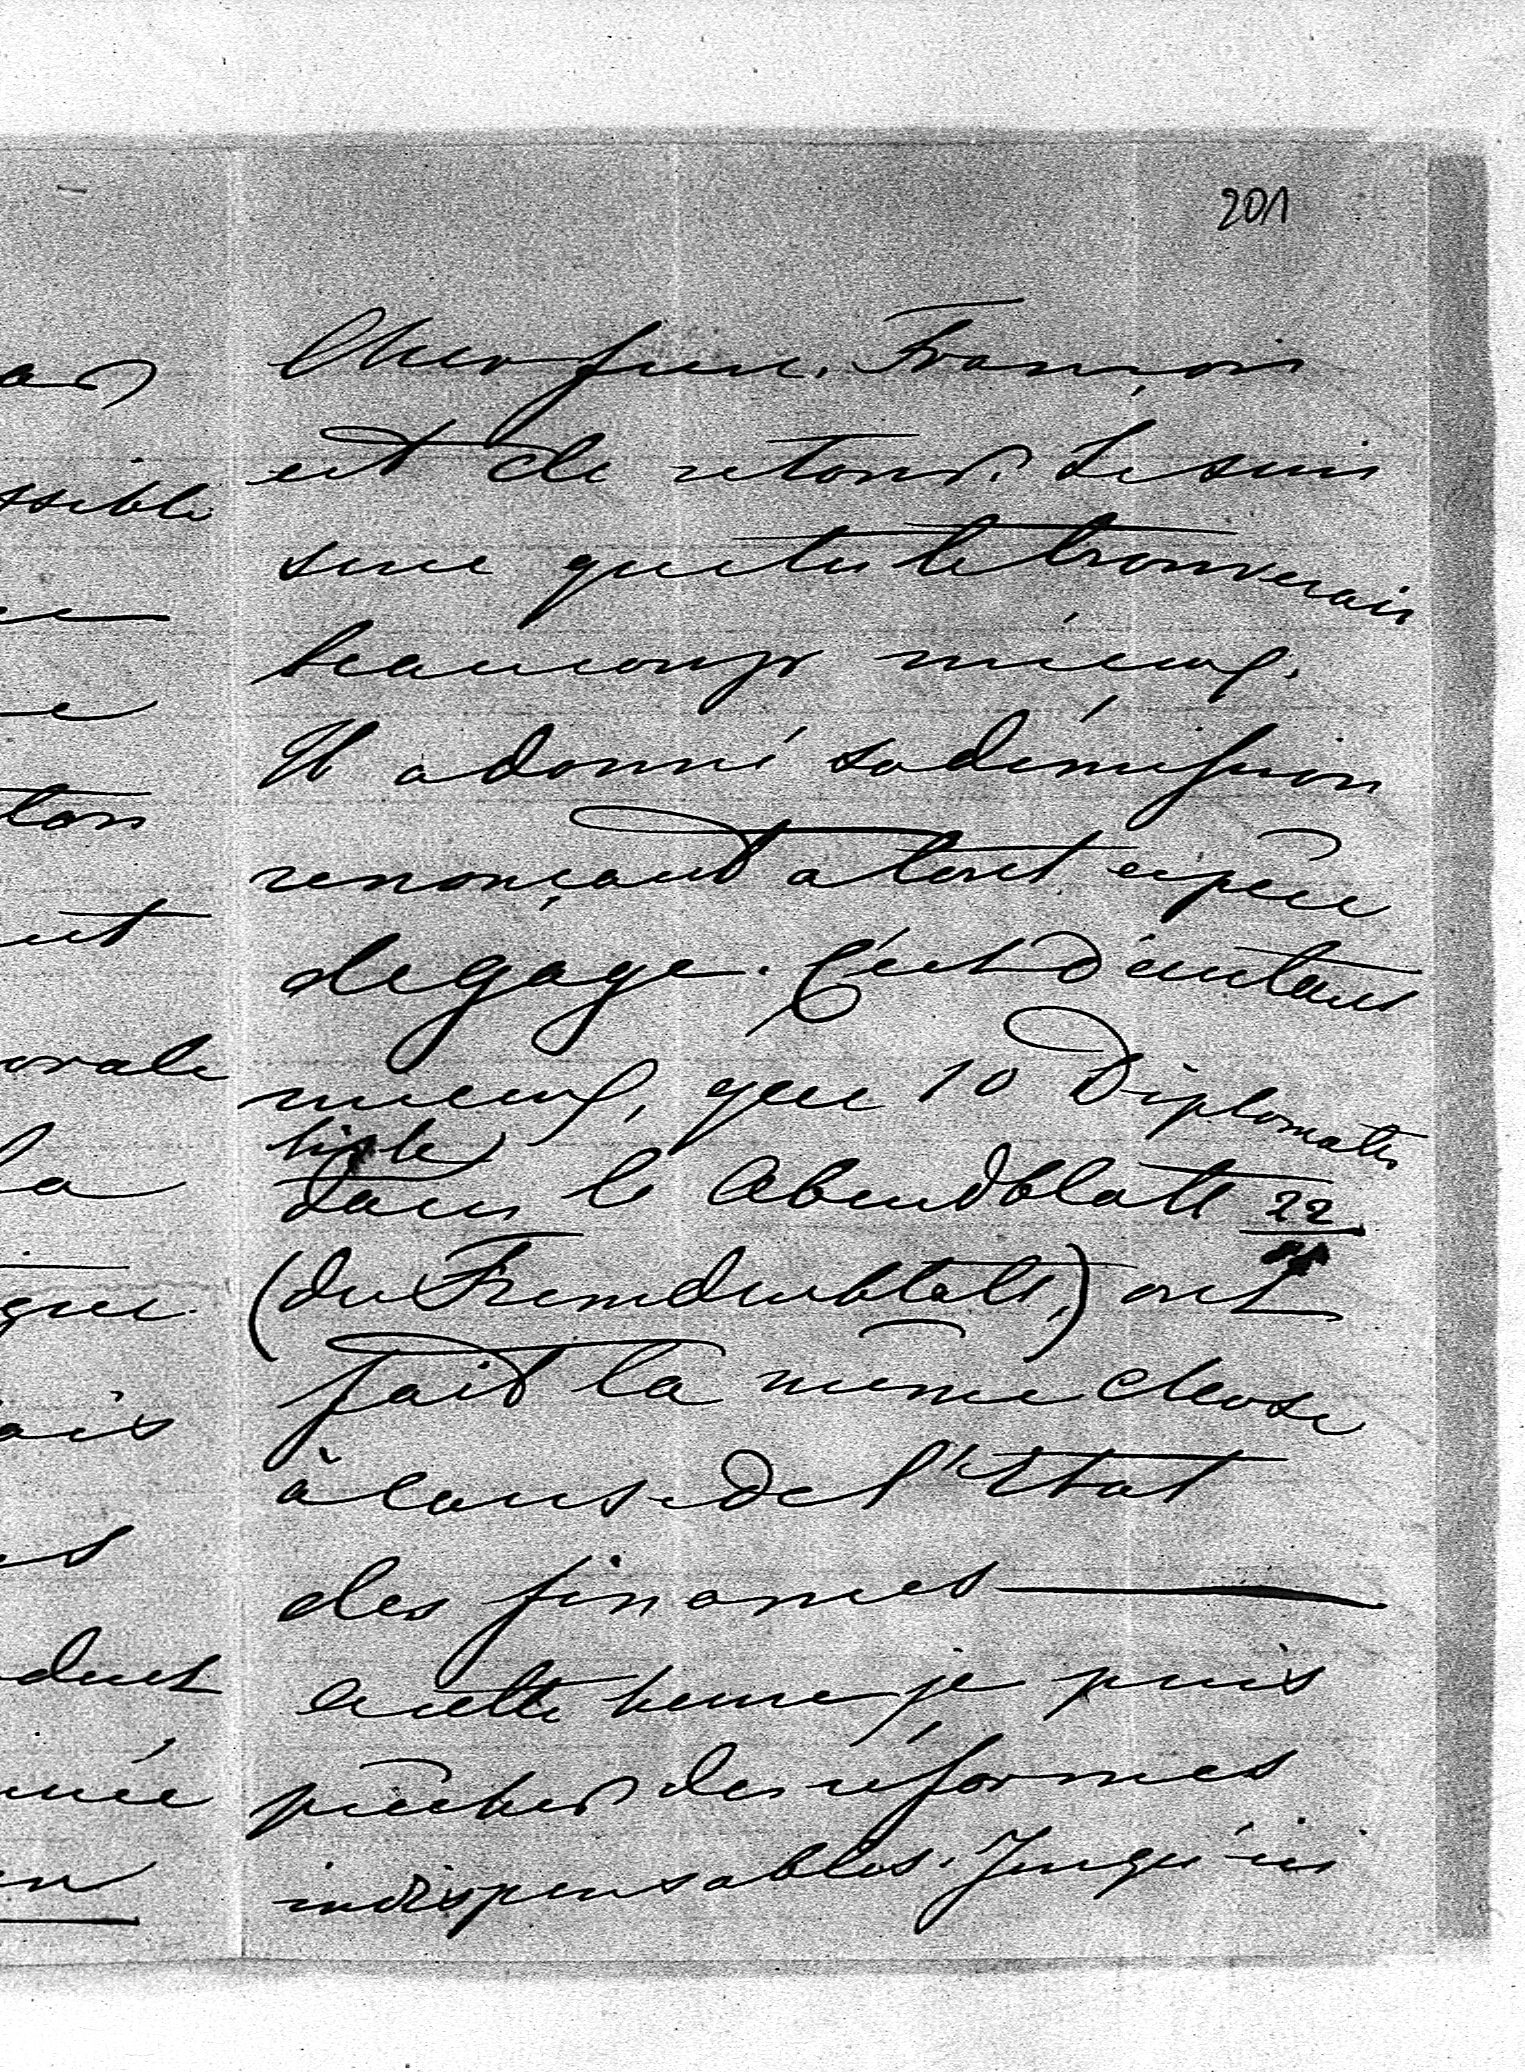 201
Cher frère. François
est de retour. Je suis
sure que tu le trouverais
beaucoup mieux.
Il a donné sa démission
renonçant a tout espèce
de gage. C'est d'autant
mieux, que 10 Diplomates
dans le Abendblatt 22
(du Fremdenblatt,) ont
fait la même chose
à cause de l'état
des finances
a cette heure je puis
prêcher des réformes
indispensables. Jusqu'ici
ssible
ton
orale
la
que
ais